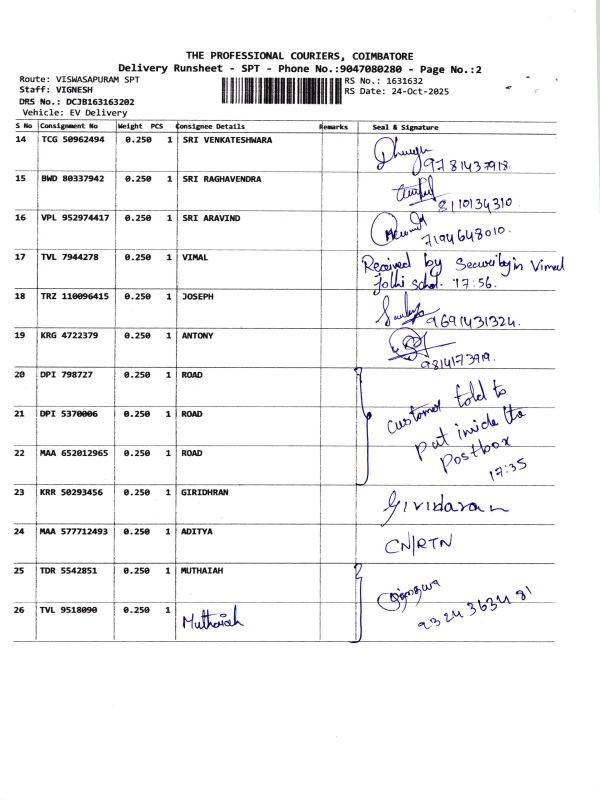 THE PROFESSIONAL COURIERS, COIMBATORE
Delivery Runsheet - SPT - Phone No.:9047080280 - Page No.:2
Route: VISWASAPURAM SPT
RS No.: 1631632
Staff: VIGNESH
RS Date: 24-Oct-2025
DRS No.: DCJB163163202
Vehicle: EV Delivery
S No Consignment No Weight PCS Consignee Details Remarks Seal & Signature
14 TCG 50962494 0.250 1 SRI VENKATESHWARA
9781437918
15 BWD 80337942 0.250 1 SRI RAGHAVENDRA
8110134310.
16 VPL 952974417 0.250 1 SRI ARAVIND
7194648010.
17 TVL 7944278 0.250 1 VIMAL Received by Security in Vimal
School. 17:56.
18 TRZ 110096415 0.250 1 JOSEPH
9691431324.
19 KRG 4722379 0.250 1 ANTONY
9814173919.
20 DPI 798727 0.250 1 ROAD
customer told to
21 DPI 5370006 0.250 1 ROAD
put inside the
22 MAA 652012965 0.250 1 ROAD
Postbox
17:35
23 KRR 50293456 0.250 1 GIRIDHRAN Giridaran
24 MAA 577712493 0.250 1 ADITYA CN/RTN
25 TDR 5542851 0.250 1 MUTHAIAH
26 TVL 9518090 0.250 1 Muthaiah
9324363481